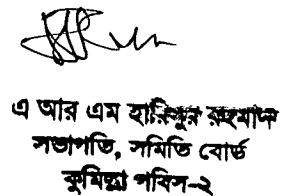 এ আর এম হারিসুর রহমান
সভাপতি, সমিতি বোর্ড
কুমিল্লা পবিস-২